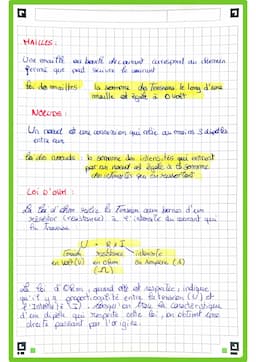 MAILLES :
Une maille ou boucle de courant correspond au chemin
fermé que peut suivre le courant
Loi des mailles : la somme des Tensions le long d'une
maille est égale à 0 volt
NOEUDS :
Un noeud est une connexion qui relie au moins 3 dipôles
entre eux
Loi des noeuds : la somme des intensités qui entrent
par un noeud est égale à la somme
des intensités qui en ressortent
LOI D'OHM :
La loi d'Ohm relie la Tension aux bornes d'un
résistor (résistance) à l'intensité du courant qui
la traverse
U = R x I
Tension résistance intensité
en volt (V) en ohm en Ampère (A)
(Ω)
La loi d'Ohm, quand elle est respectée, indique
qu'il y a proportionnalité entre la tension (U) et
l'intensité (I)
d'un dipôle qui respecte cette loi, on obtient une
droite passant par l'origine.